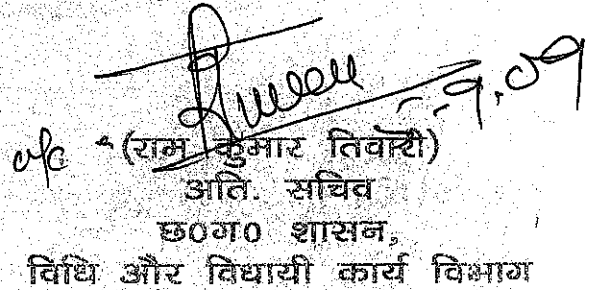 (राम कुमार तिवारी)
अति. सचिव
छ०ग० शासन,
विधि और विधायी कार्य विभाग